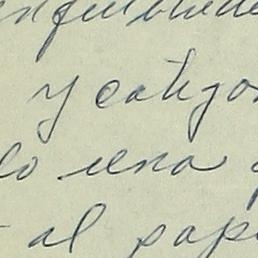 y catego
lo una
al pap